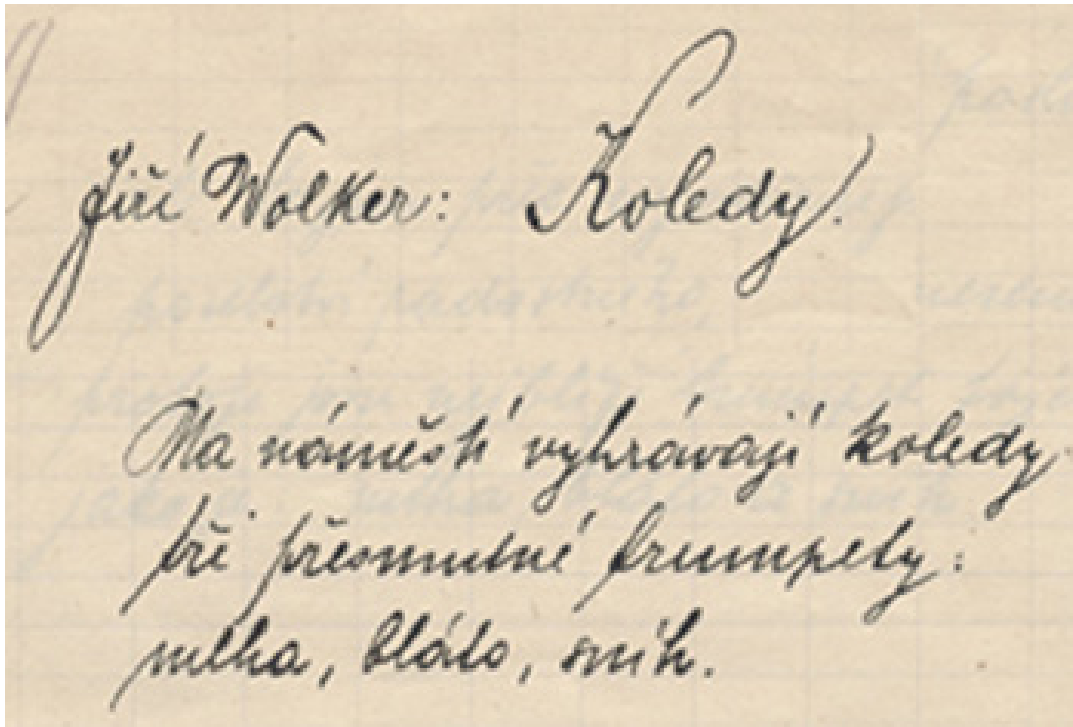 Jiří Wolker: Koledy.
Na náměstí vyhrávají koledy
tři přesmutné trumpety:
mlha, bláto, sníh.